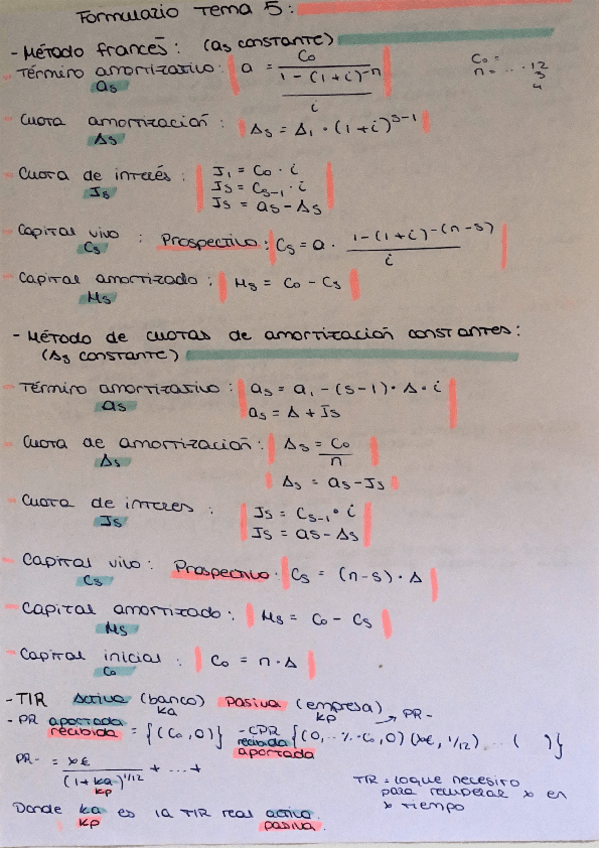 Formulario Tema 5:
- Método francés: (as constante)
- Término amortizativo: a = C₀ / ((1 - (1+i)^-n) / i)
as
C₀ =
n = ... 12
3
4
- Cuota amortización: Δs = Δ₁ · (1+i)^(s-1)
Δs
- Cuota de interés: I₁ = C₀ · i
Is
Is = Cs-1 · i
Is = as - Δs
- Capital vivo: Prospectivo: Cs = a · (1 - (1+i)^-(n-s)) / i
Cs
- Capital amortizado: Ms = C₀ - Cs
Ms
- Método de cuotas de amortización constantes:
(Δs constante)
- Término amortizativo: as = a₁ - (s-1) · Δ · i
as
as = Δ + Is
- Cuota de amortización: Δs = C₀ / n
Δs
Δs = as - Is
- Cuota de interes: Is = Cs-1 · i
Is
Is = as - Δs
- Capital vivo: Prospectivo: Cs = (n-s) · Δ
Cs
- Capital amortizado: Ms = C₀ - Cs
Ms
- Capital inicial: C₀ = n · Δ
C₀
- TIR Activa (banco) Pasiva (empresa)
ka kp → PR -
- PR aportada = {(C₀, 0)} - CPR {(0, ..% · C₀, 0) (x€, 1/12) ... ( )}
recibida recibida
aportada
PR - = x€ / (1+ka)^1/12 + ... +
kp
TIR = lo que necesito
para recuperar x en
x tiempo
Donde ka es la TIR real activa.
kp pasiva.